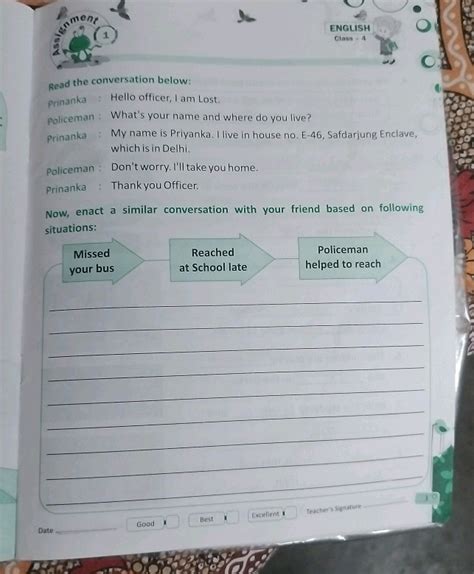 Assignment
1
ENGLISH
Class - 4
Read the conversation below:
Prinanka : Hello officer, I am Lost.
Policeman : What's your name and where do you live?
Prinanka : My name is Priyanka. I live in house no. E-46, Safdarjung Enclave,
which is in Delhi.
Policeman : Don't worry. I'll take you home.
Prinanka : Thank you Officer.
Now, enact a similar conversation with your friend based on following
situations:
Missed
your bus
Reached
at School late
Policeman
helped to reach
Date
Good
Best
Excellent
Teacher's Signature